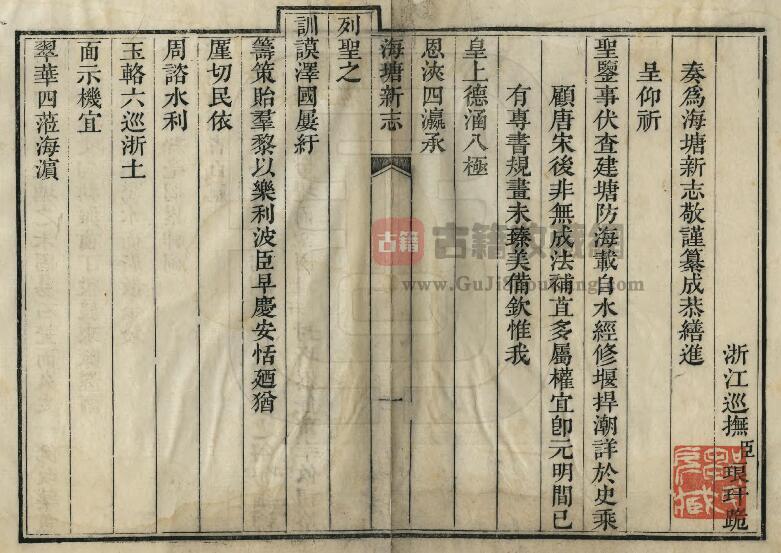 浙江巡撫臣琅玕跪
奏爲海塘新志敬謹纂成恭繕進
呈仰祈
聖鑒事伏查建塘防海載自水經修堰捍潮詳於史乘
顧唐宋後非無成法補苴多屬權宜卽元明間已
有專書規畫未臻美備欽惟我
皇上德涵八極
恩浹四瀛承
海塘新志
一
列聖之
訓謨澤國屢紆
籌策貽羣黎以樂利波臣早慶安恬廼猶
厪切民依
周諮水利
玉輅六巡浙土
面示機宜
翠華四蒞海濵
古籍 古籍收藏網
www.GuJiShouCang.com